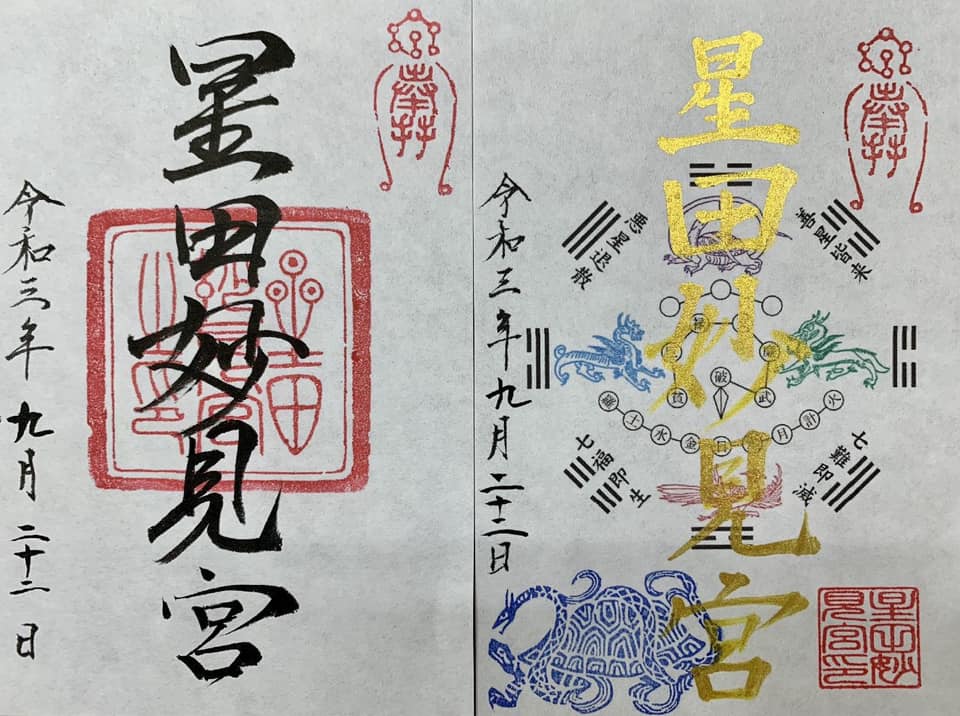 星田妙見宮
令和三年九月二十二日
星田妙見宮
令和三年九月二十二日
悪星退散
善星皆来
七福即生
七難即滅
破
武
廉
禄
貪
羅
土
水
金
日
月
計
火
星田妙
見宮印